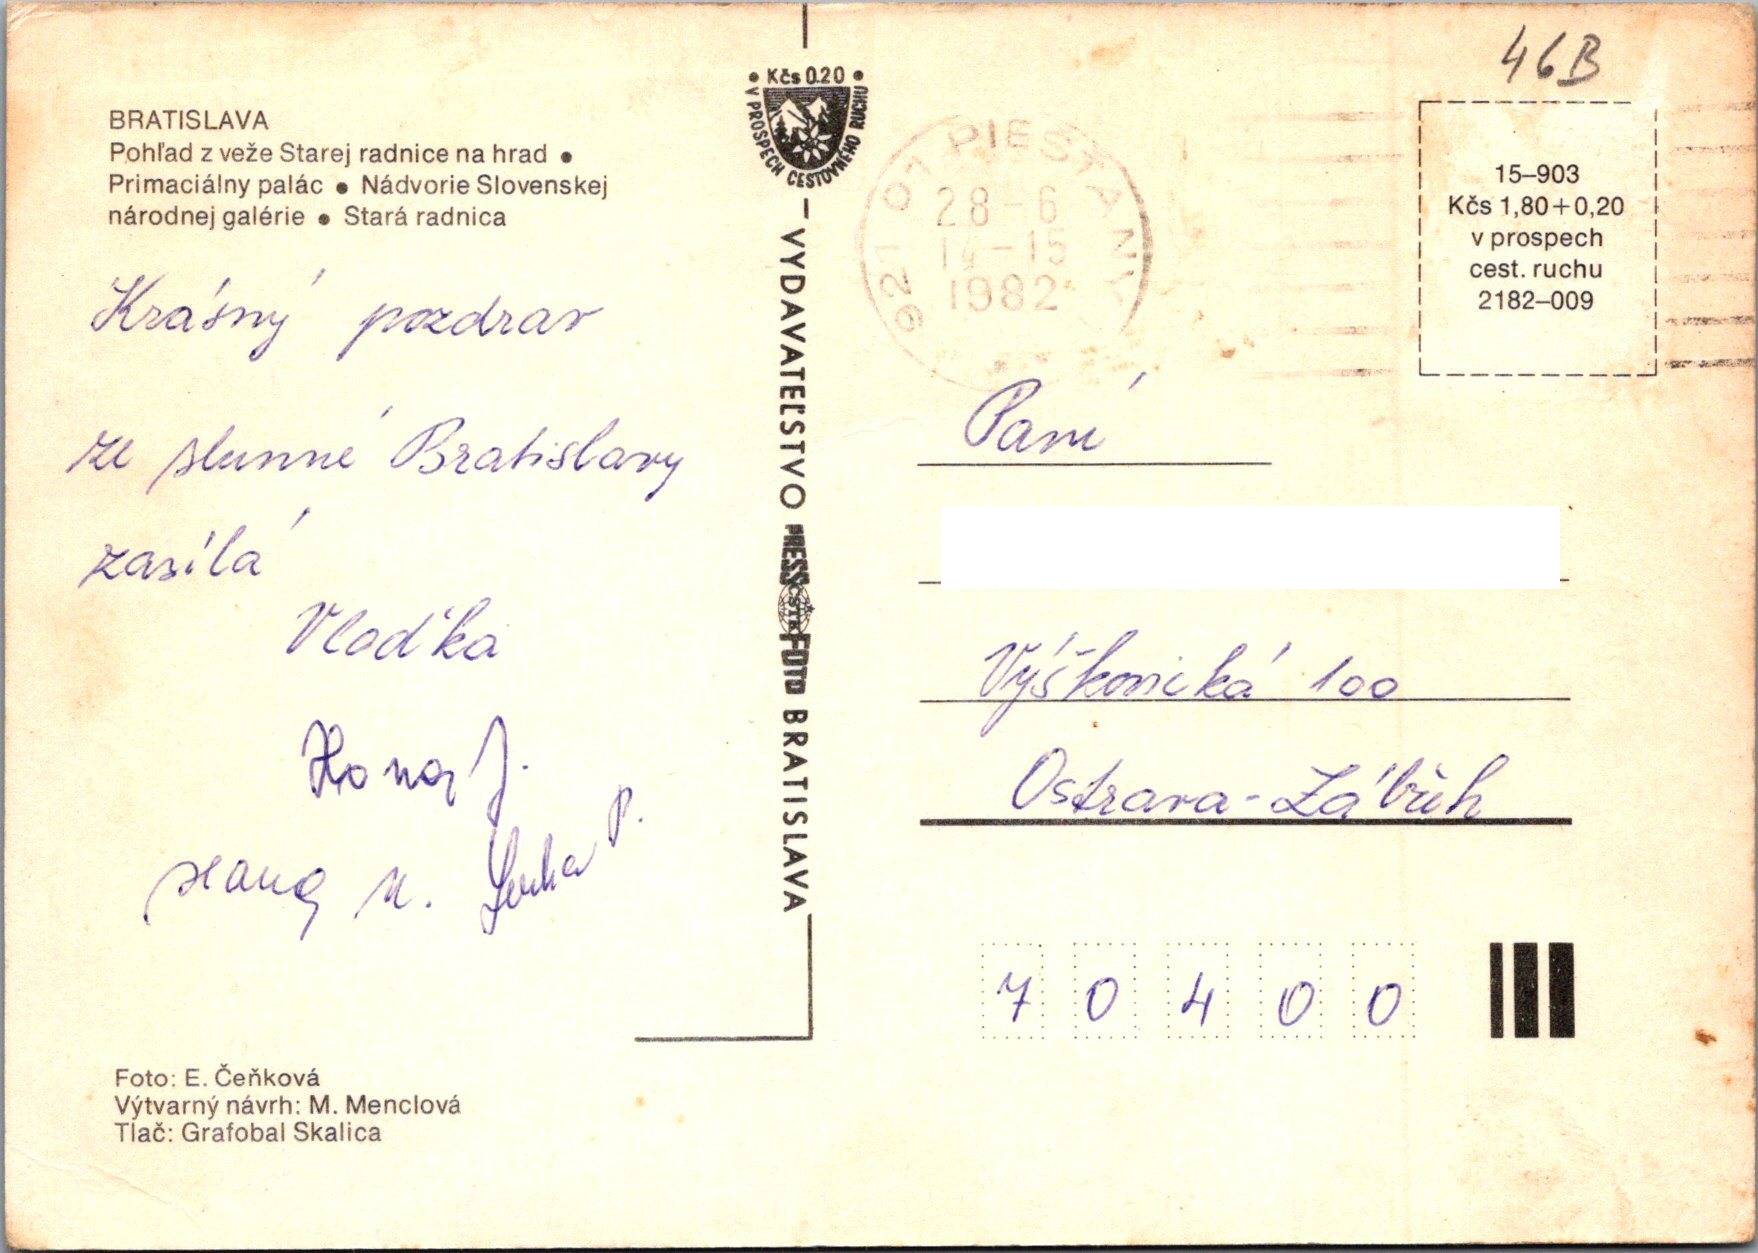 46B
BRATISLAVA
Pohľad z veže Starej radnice na hrad •
Primaciálny palác • Nádvorie Slovenskej
národnej galérie • Stará radnica
Krásný pozdrav
ze slunné Bratislavy
zasílá
Vlaďka
Hona J.
P.
Foto: E. Čeňková
Výtvarný návrh: M. Menclová
Tlač: Grafobal Skalica
• Kčs 0.20 •
V PROSPECH CESTOVNÉHO RUCHU
VYDAVATEĽSTVO PRESSFOTO BRATISLAVA
ČSTK
921 01 PIEŠŤANY
28-6
14-15
1982
15–903
Kčs 1,80+0,20
v prospech
cest. ruchu
2182–009
Paní
Výškovická 100
Ostrava-Zábřeh
70400